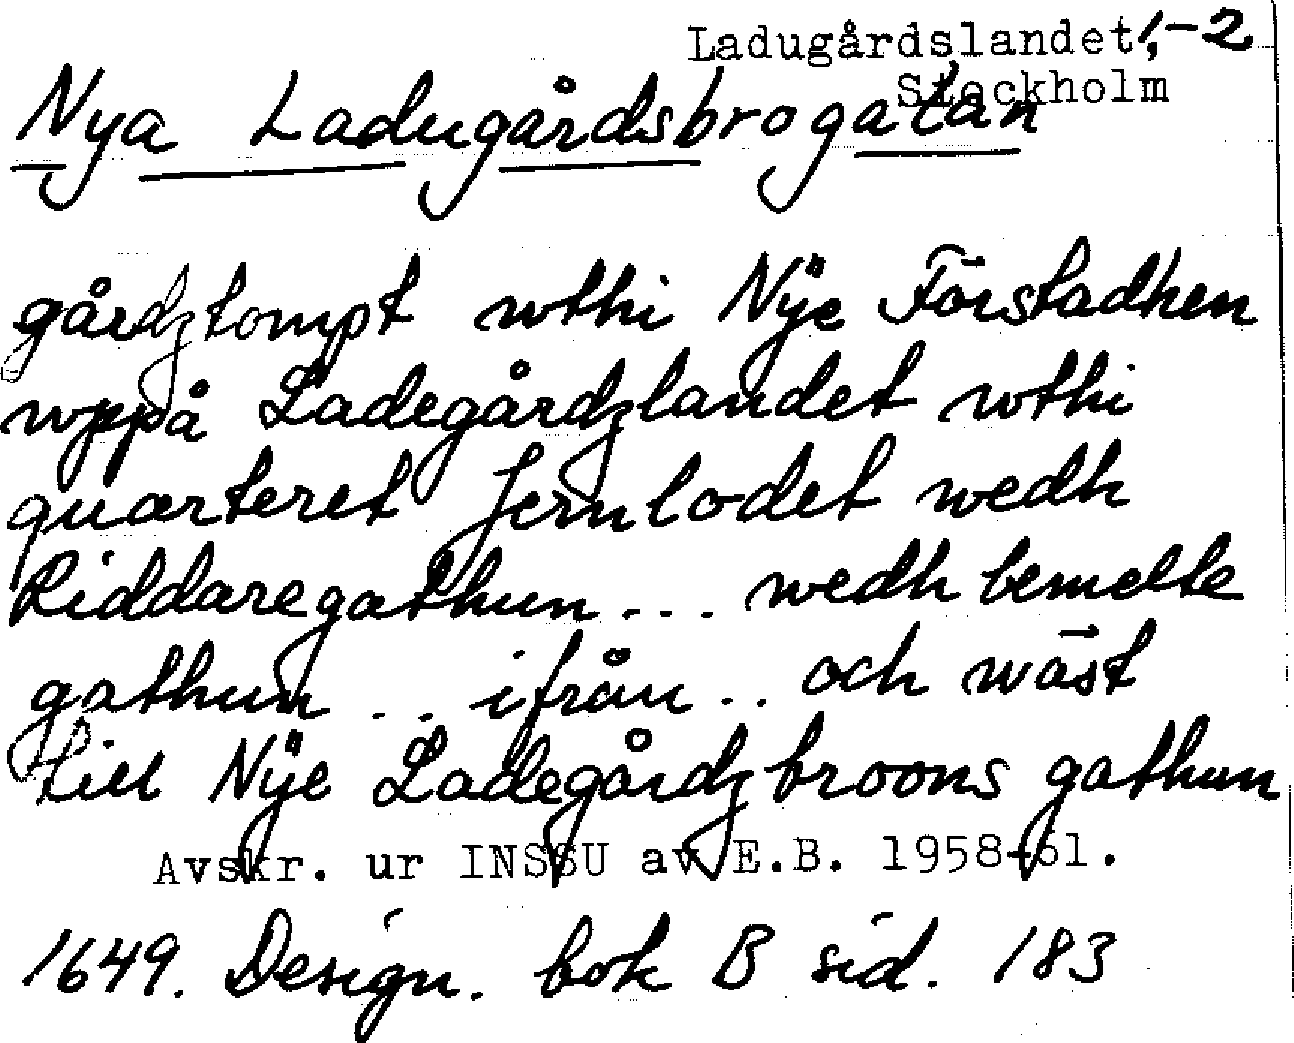 Ladugårdslandet, 1-2
Stockholm
Nya Ladugårdsbrogatan
gårdztompt wthi Nÿe Förstadhen
wppå Ladegårdzlandet wthi
quarteret Jernlodet wedh
Riddaregathun... wedh bemelte
gathun... ifrån.. och wäst
till Nÿe Ladegårdzbroons gathun
Avskr. ur INSSU av E.B. 1958-61.
1649. Design. bok B sid. 183